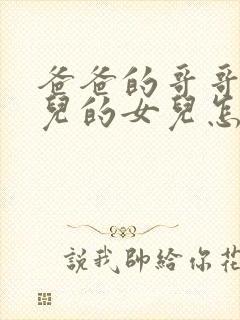 爸爸的哥哥
兒的女兒怎
說我帥給你花